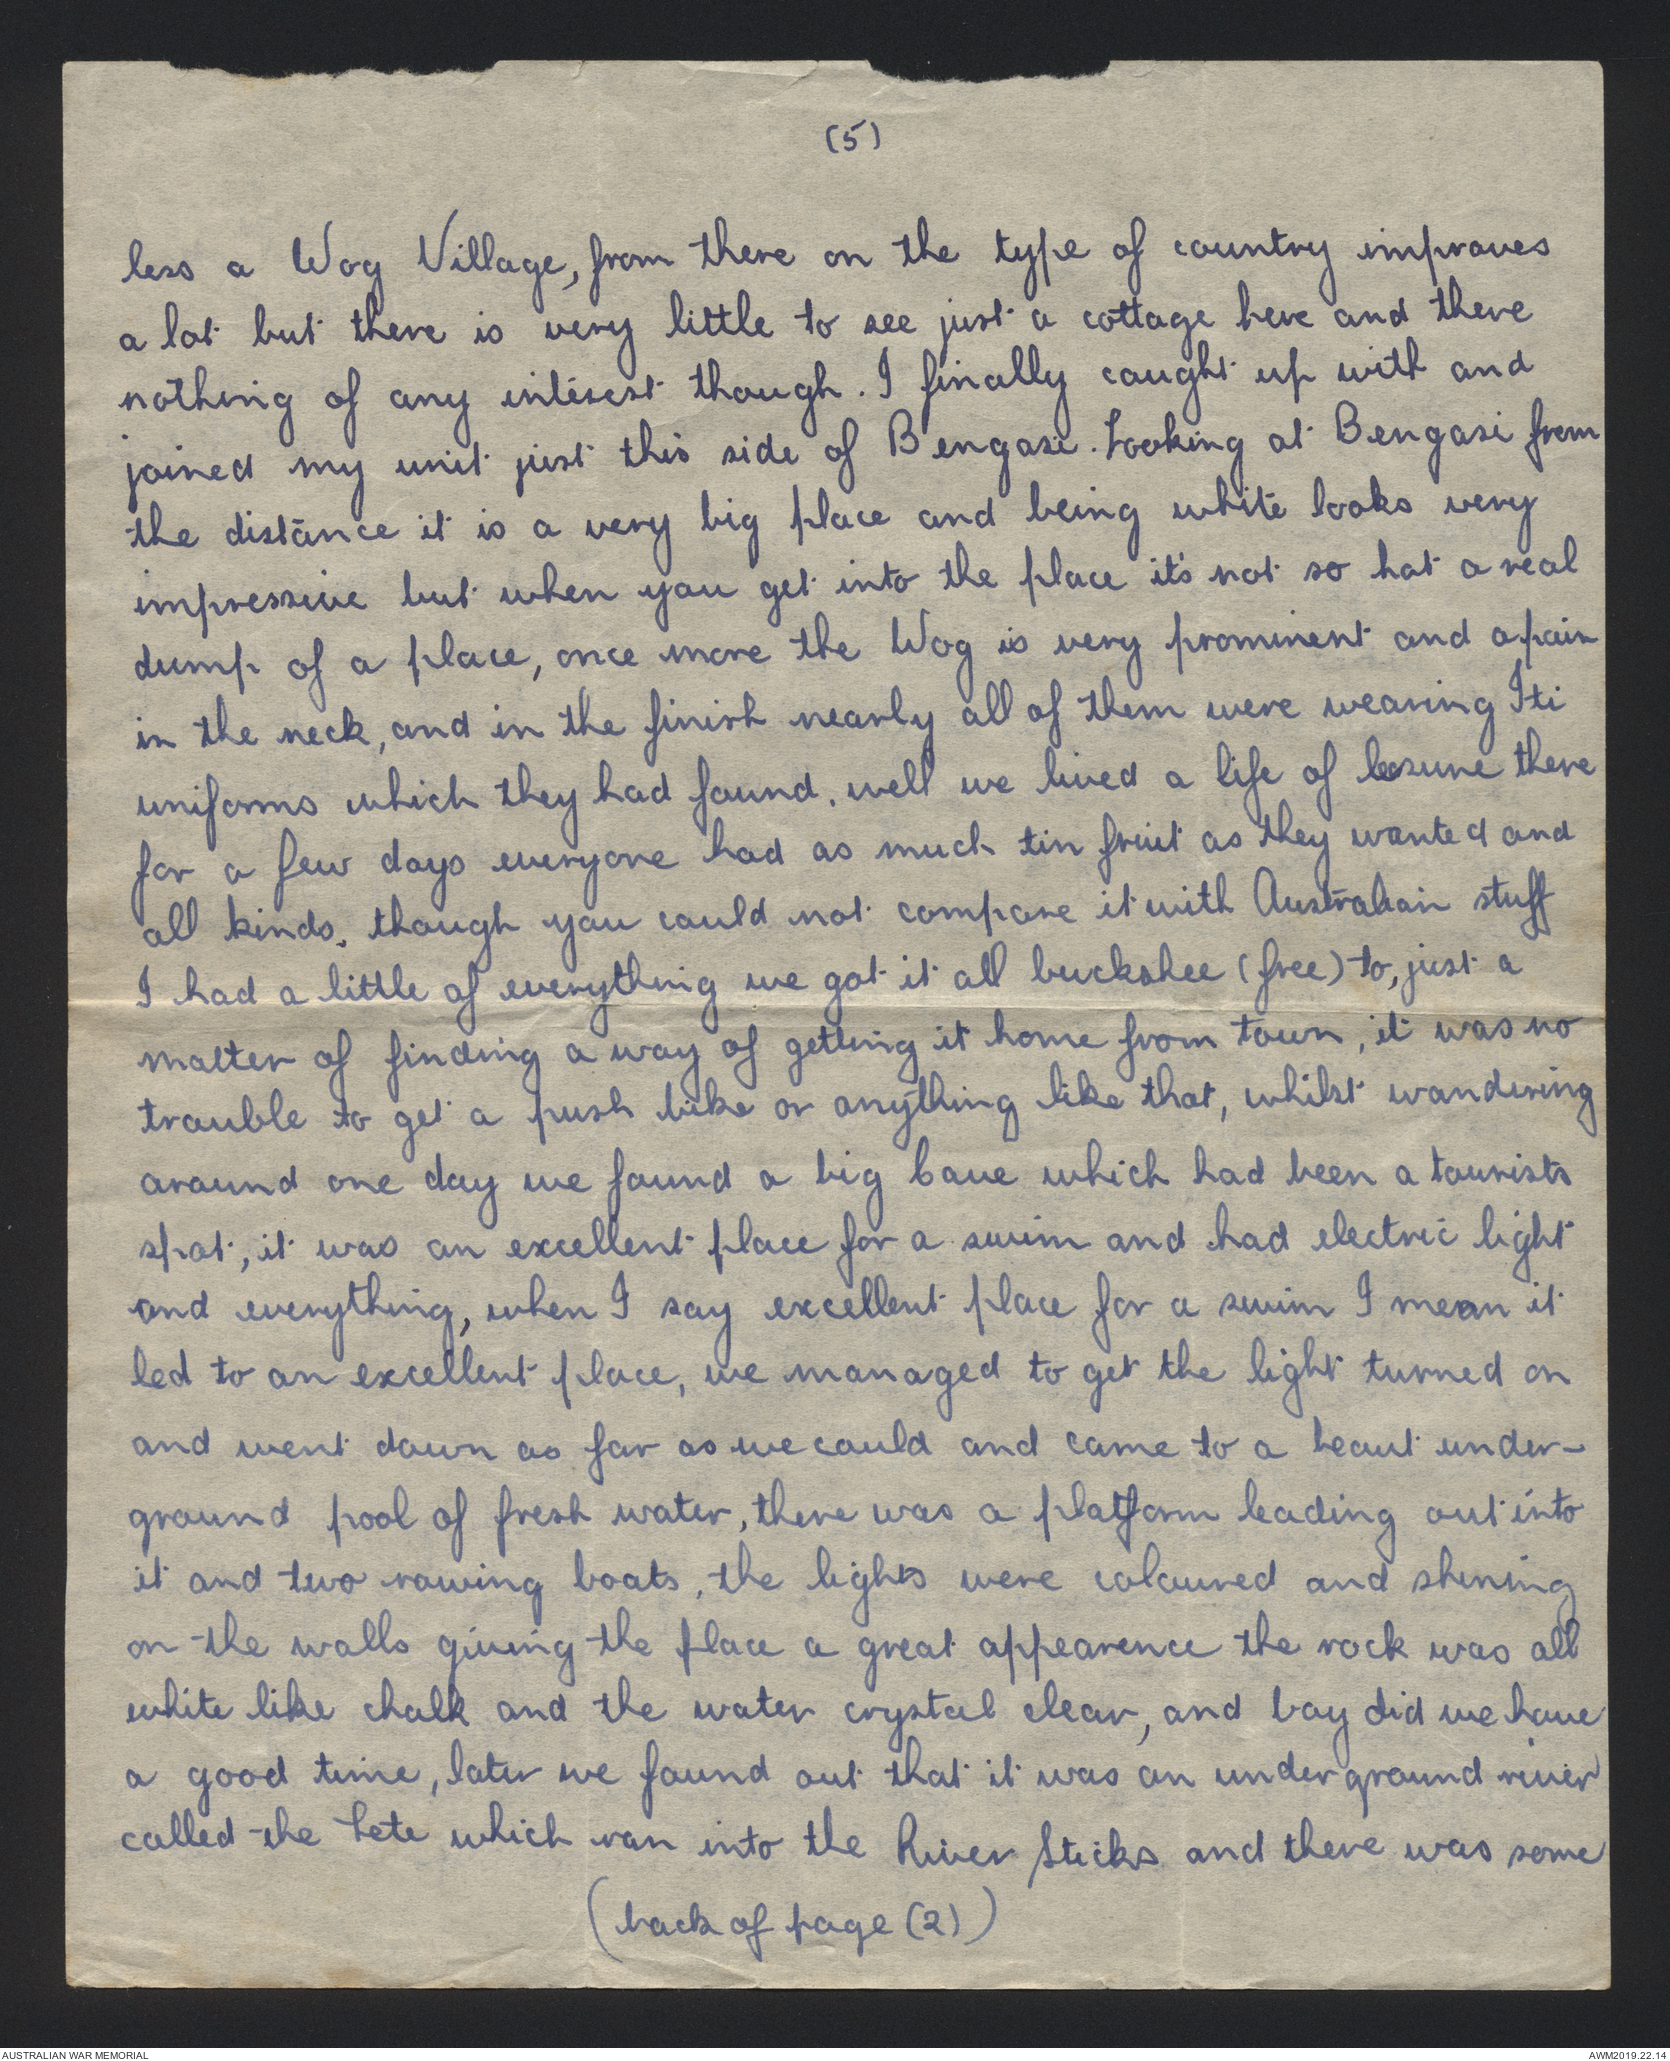 (5)
less a Wog Village, from there on the type of country improves
a lot but there is very little to see just a cottage here and there
nothing of any interest though. I finally caught up with and
joined my unit just this side of Bengasi. Looking at Bengasi from
the distance it is a very big place and being white looks very
impressive but when you get into the place it's not so hot a real
dump of a place, once more the Wog is very prominent and a pain
in the neck, and in the finish nearly all of them were wearing Iti
uniforms which they had found. well we lived a life of lesure there
for a few days everyone had as much tin fruit as they wanted and
all kinds, though you could not compare it with Australian stuff
I had a little of everything we got it all buckshee (free) to, just a
matter of finding a way of getting it home from town, it was no
trouble to get a push bike or anything like that, whilst wandering
around one day we found a big Cave which had been a tourists
spot, it was an excellent place for a swim and had electric light
and everything, when I say excellent place for a swim I mean it
led to an excellent place, we managed to get the light turned on
and went down as far as we could and came to a beaut under-
ground pool of fresh water, there was a platform leading out into
it and two rowing boats, the lights were coloured and shining
on the walls giving the place a great appearence the rock was all
white like chalk and the water crystal clear, and boy did we have
a good time, later we found out that it was an underground river
called the Lete which ran into the River Sticks and there was some
(back of page (2))
AUSTRALIAN WAR MEMORIAL
AWM2019.22.14